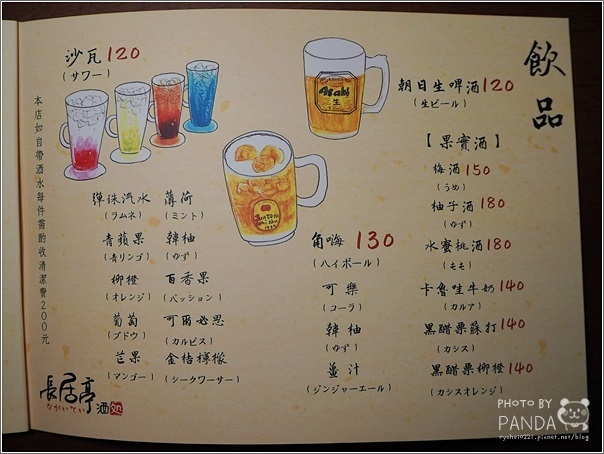 飲品
沙瓦120
(サワー)
彈珠汽水 薄荷
(ラムネ) (ミント)
青蘋果 韓柚
(青リンゴ) (ゆず)
柳橙 百香果
(オレンジ) (パッション)
葡萄 可爾必思
(ブドウ) (カルピス)
芒果 金桔檸檬
(マンゴー) (シークワーサー)
Asahi
生
SUNTORY
角嗨 130
(ハイボール)
可樂
(コーラ)
韓柚
(ゆず)
薑汁
(ジンジャーエール)
朝日生啤酒120
(生ビール)
【果實酒】
梅酒150
(うめ)
柚子酒180
(ゆず)
水蜜桃酒180
(もも)
卡魯哇牛奶140
(カルア)
黑醋栗蘇打140
(カシス)
黑醋栗柳橙140
(カシスオレンジ)
本店如自帶酒水每件需酌收清潔費200元
長居亭
ながいてい
酒処
PHOTO BY
PANDA
ryohei0221.pixnet.net/blog